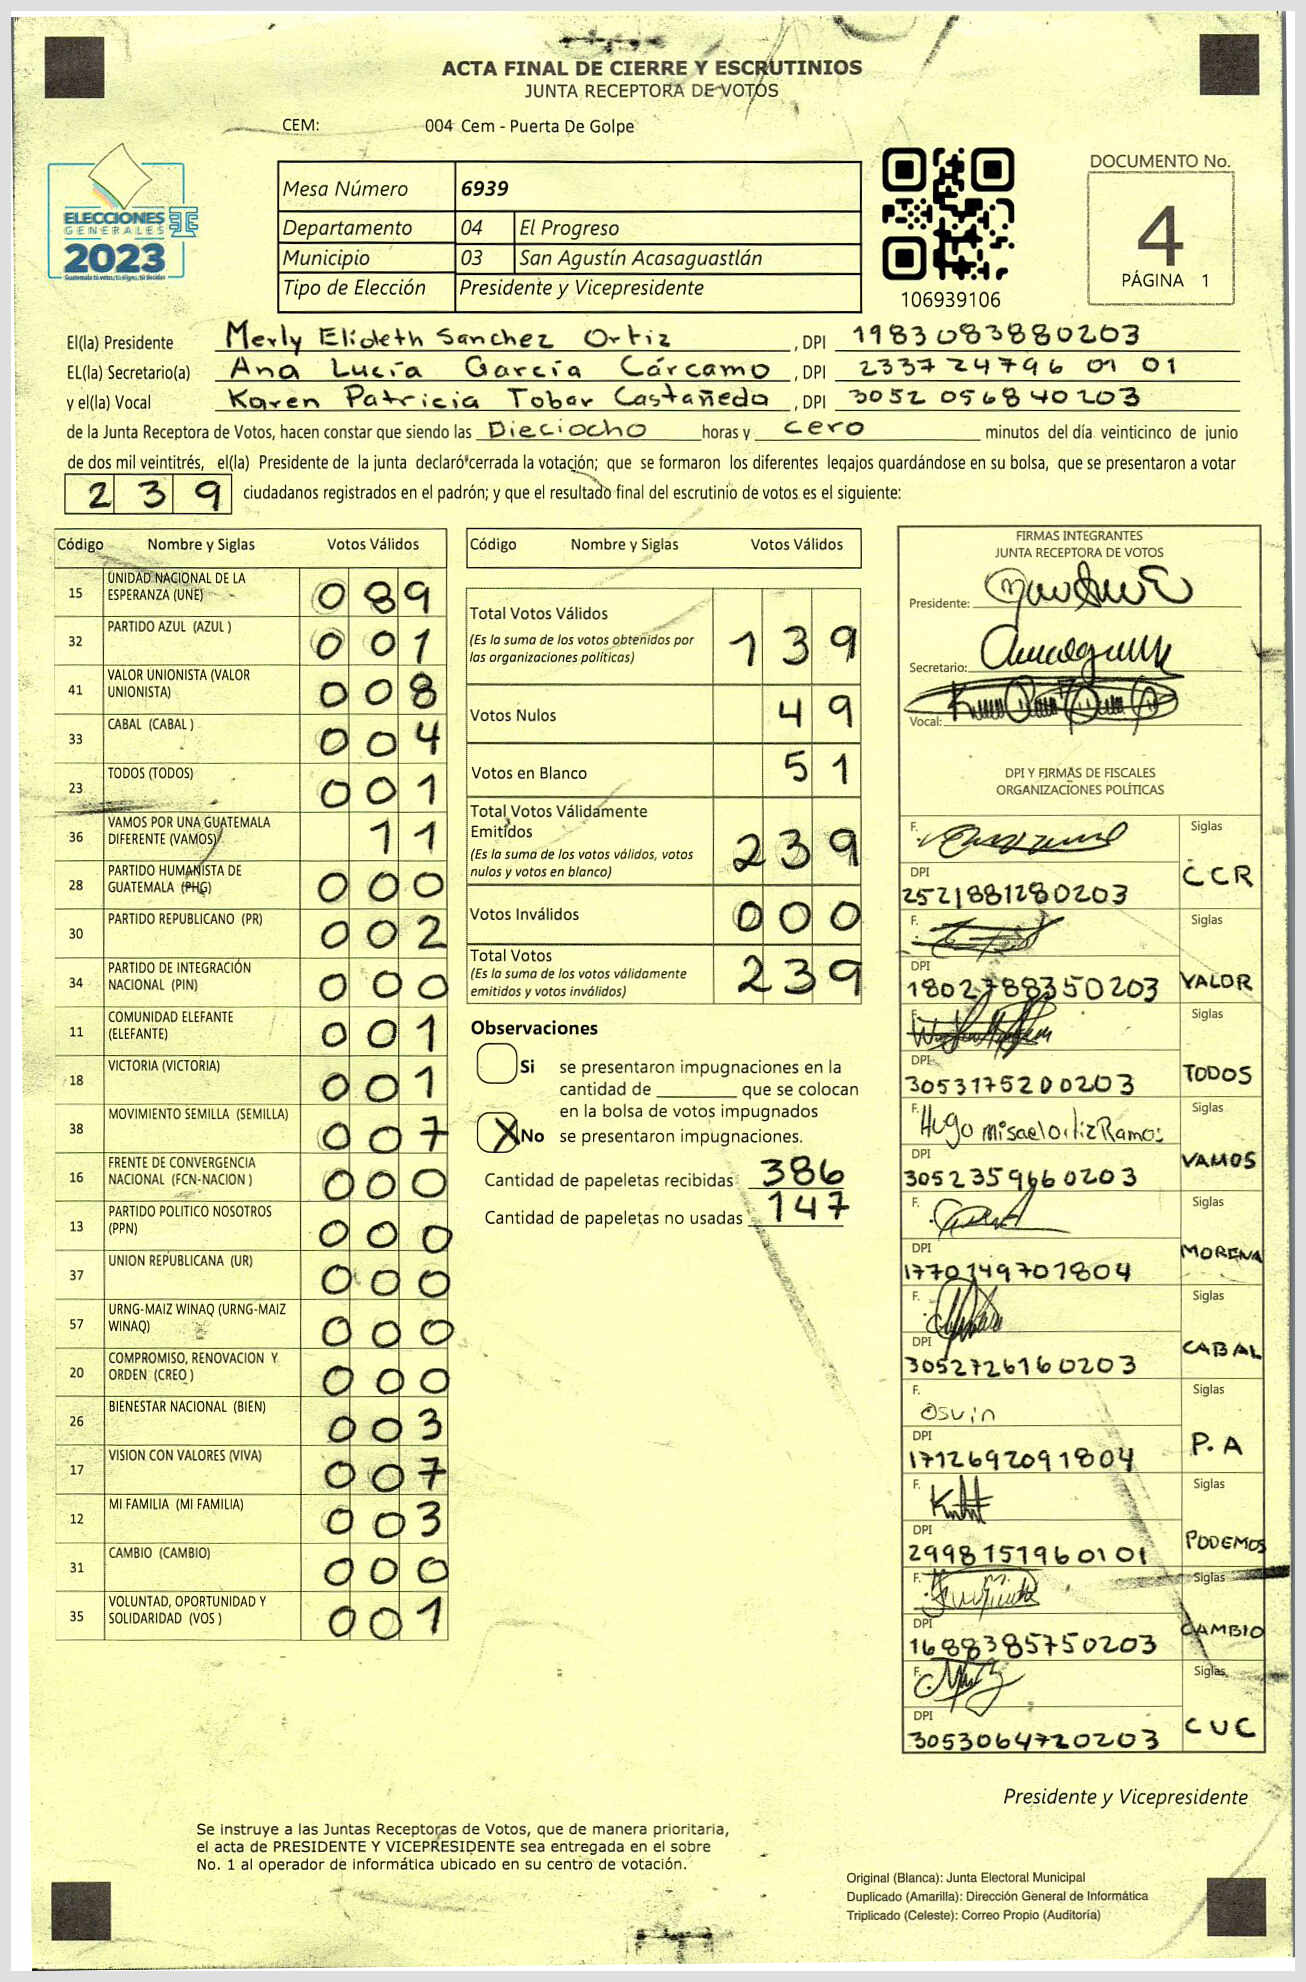 ACTA FINAL DE CIERRE Y ESCRUTINIOS
JUNTA RECEPTORA DE VOTOS
CEM: 004 Cem - Puerta De Golpe
ELECCIONES
GENERALES
2023
Mesa Número 6939
Departamento 04 El Progreso
Municipio 03 San Agustín Acasaguastlán
Tipo de Elección Presidente y Vicepresidente
106939106
DOCUMENTO No.
4
PÁGINA 1
El(la) Presidente Merly Elideth Sanchez Ortiz, DPI 1983083880203
EL(la) Secretario(a) Ana Lucía García Cárcamo, DPI 2337 24796 01 01
y el(la) Vocal Karen Patricia Tobar Castañeda, DPI 3052 056840203
de la Junta Receptora de Votos, hacen constar que siendo las Dieciocho horas y cero minutos del día veinticinco de junio
de dos mil veintitrés, el(la) Presidente de la junta declaró cerrada la votación; que se formaron los diferentes legajos guardándose en su bolsa, que se presentaron a votar
239 ciudadanos registrados en el padrón; y que el resultado final del escrutinio de votos es el siguiente:
Código Nombre y Siglas Votos Válidos
15 UNIDAD NACIONAL DE LA ESPERANZA (UNE) 089
32 PARTIDO AZUL (AZUL ) 001
41 VALOR UNIONISTA (VALOR UNIONISTA) 008
33 CABAL (CABAL ) 004
23 TODOS (TODOS) 001
36 VAMOS POR UNA GUATEMALA DIFERENTE (VAMOS) 11
28 PARTIDO HUMANISTA DE GUATEMALA (PHG) 000
30 PARTIDO REPUBLICANO (PR) 002
34 PARTIDO DE INTEGRACIÓN NACIONAL (PIN) 000
11 COMUNIDAD ELEFANTE (ELEFANTE) 001
18 VICTORIA (VICTORIA) 001
38 MOVIMIENTO SEMILLA (SEMILLA) 007
16 FRENTE DE CONVERGENCIA NACIONAL (FCN-NACION ) 000
13 PARTIDO POLITICO NOSOTROS (PPN) 000
37 UNION REPUBLICANA (UR) 000
57 URNG-MAIZ WINAQ (URNG-MAIZ WINAQ) 000
20 COMPROMISO, RENOVACION Y ORDEN (CREO ) 000
26 BIENESTAR NACIONAL (BIEN) 003
17 VISION CON VALORES (VIVA) 007
12 MI FAMILIA (MI FAMILIA) 003
31 CAMBIO (CAMBIO) 000
35 VOLUNTAD, OPORTUNIDAD Y SOLIDARIDAD (VOS ) 001
Código Nombre y Siglas Votos Válidos
Total Votos Válidos 139
(Es la suma de los votos obtenidos por
las organizaciones políticas)
Votos Nulos 49
Votos en Blanco 51
Total Votos Válidamente
Emitidos 239
(Es la suma de los votos válidos, votos
nulos y votos en blanco)
Votos Inválidos 000
Total Votos 239
(Es la suma de los votos válidamente
emitidos y votos inválidos)
Observaciones
Si se presentaron impugnaciones en la
cantidad de ________ que se colocan
en la bolsa de votos impugnados
X No se presentaron impugnaciones.
Cantidad de papeletas recibidas 386
Cantidad de papeletas no usadas 147
FIRMAS INTEGRANTES
JUNTA RECEPTORA DE VOTOS
Presidente:
Secretario:
Vocal:
DPI Y FIRMAS DE FISCALES
ORGANIZACIONES POLÍTICAS
F. Siglas
DPI CCR
2521881280203
F. Siglas
DPI VALOR
1802788350203
F. Siglas
DPI TODOS
3053175200203
F. Hugo misael ortiz Ramos Siglas
DPI VAMOS
3052359660203
F. Siglas
DPI MORENA
1770149701804
F. Siglas
DPI CABAL
3052726160203
F. Osvin Siglas
DPI P.A
1712692091804
F. Siglas
DPI PODEMOS
2998151960101
F. Siglas
DPI CAMBIO
1688385750203
F. Siglas
DPI CUC
3053064720203
Presidente y Vicepresidente
Se instruye a las Juntas Receptoras de Votos, que de manera prioritaria,
el acta de PRESIDENTE Y VICEPRESIDENTE sea entregada en el sobre
No. 1 al operador de informática ubicado en su centro de votación.
Original (Blanca): Junta Electoral Municipal
Duplicado (Amarilla): Dirección General de Informática
Triplicado (Celeste): Correo Propio (Auditoría)